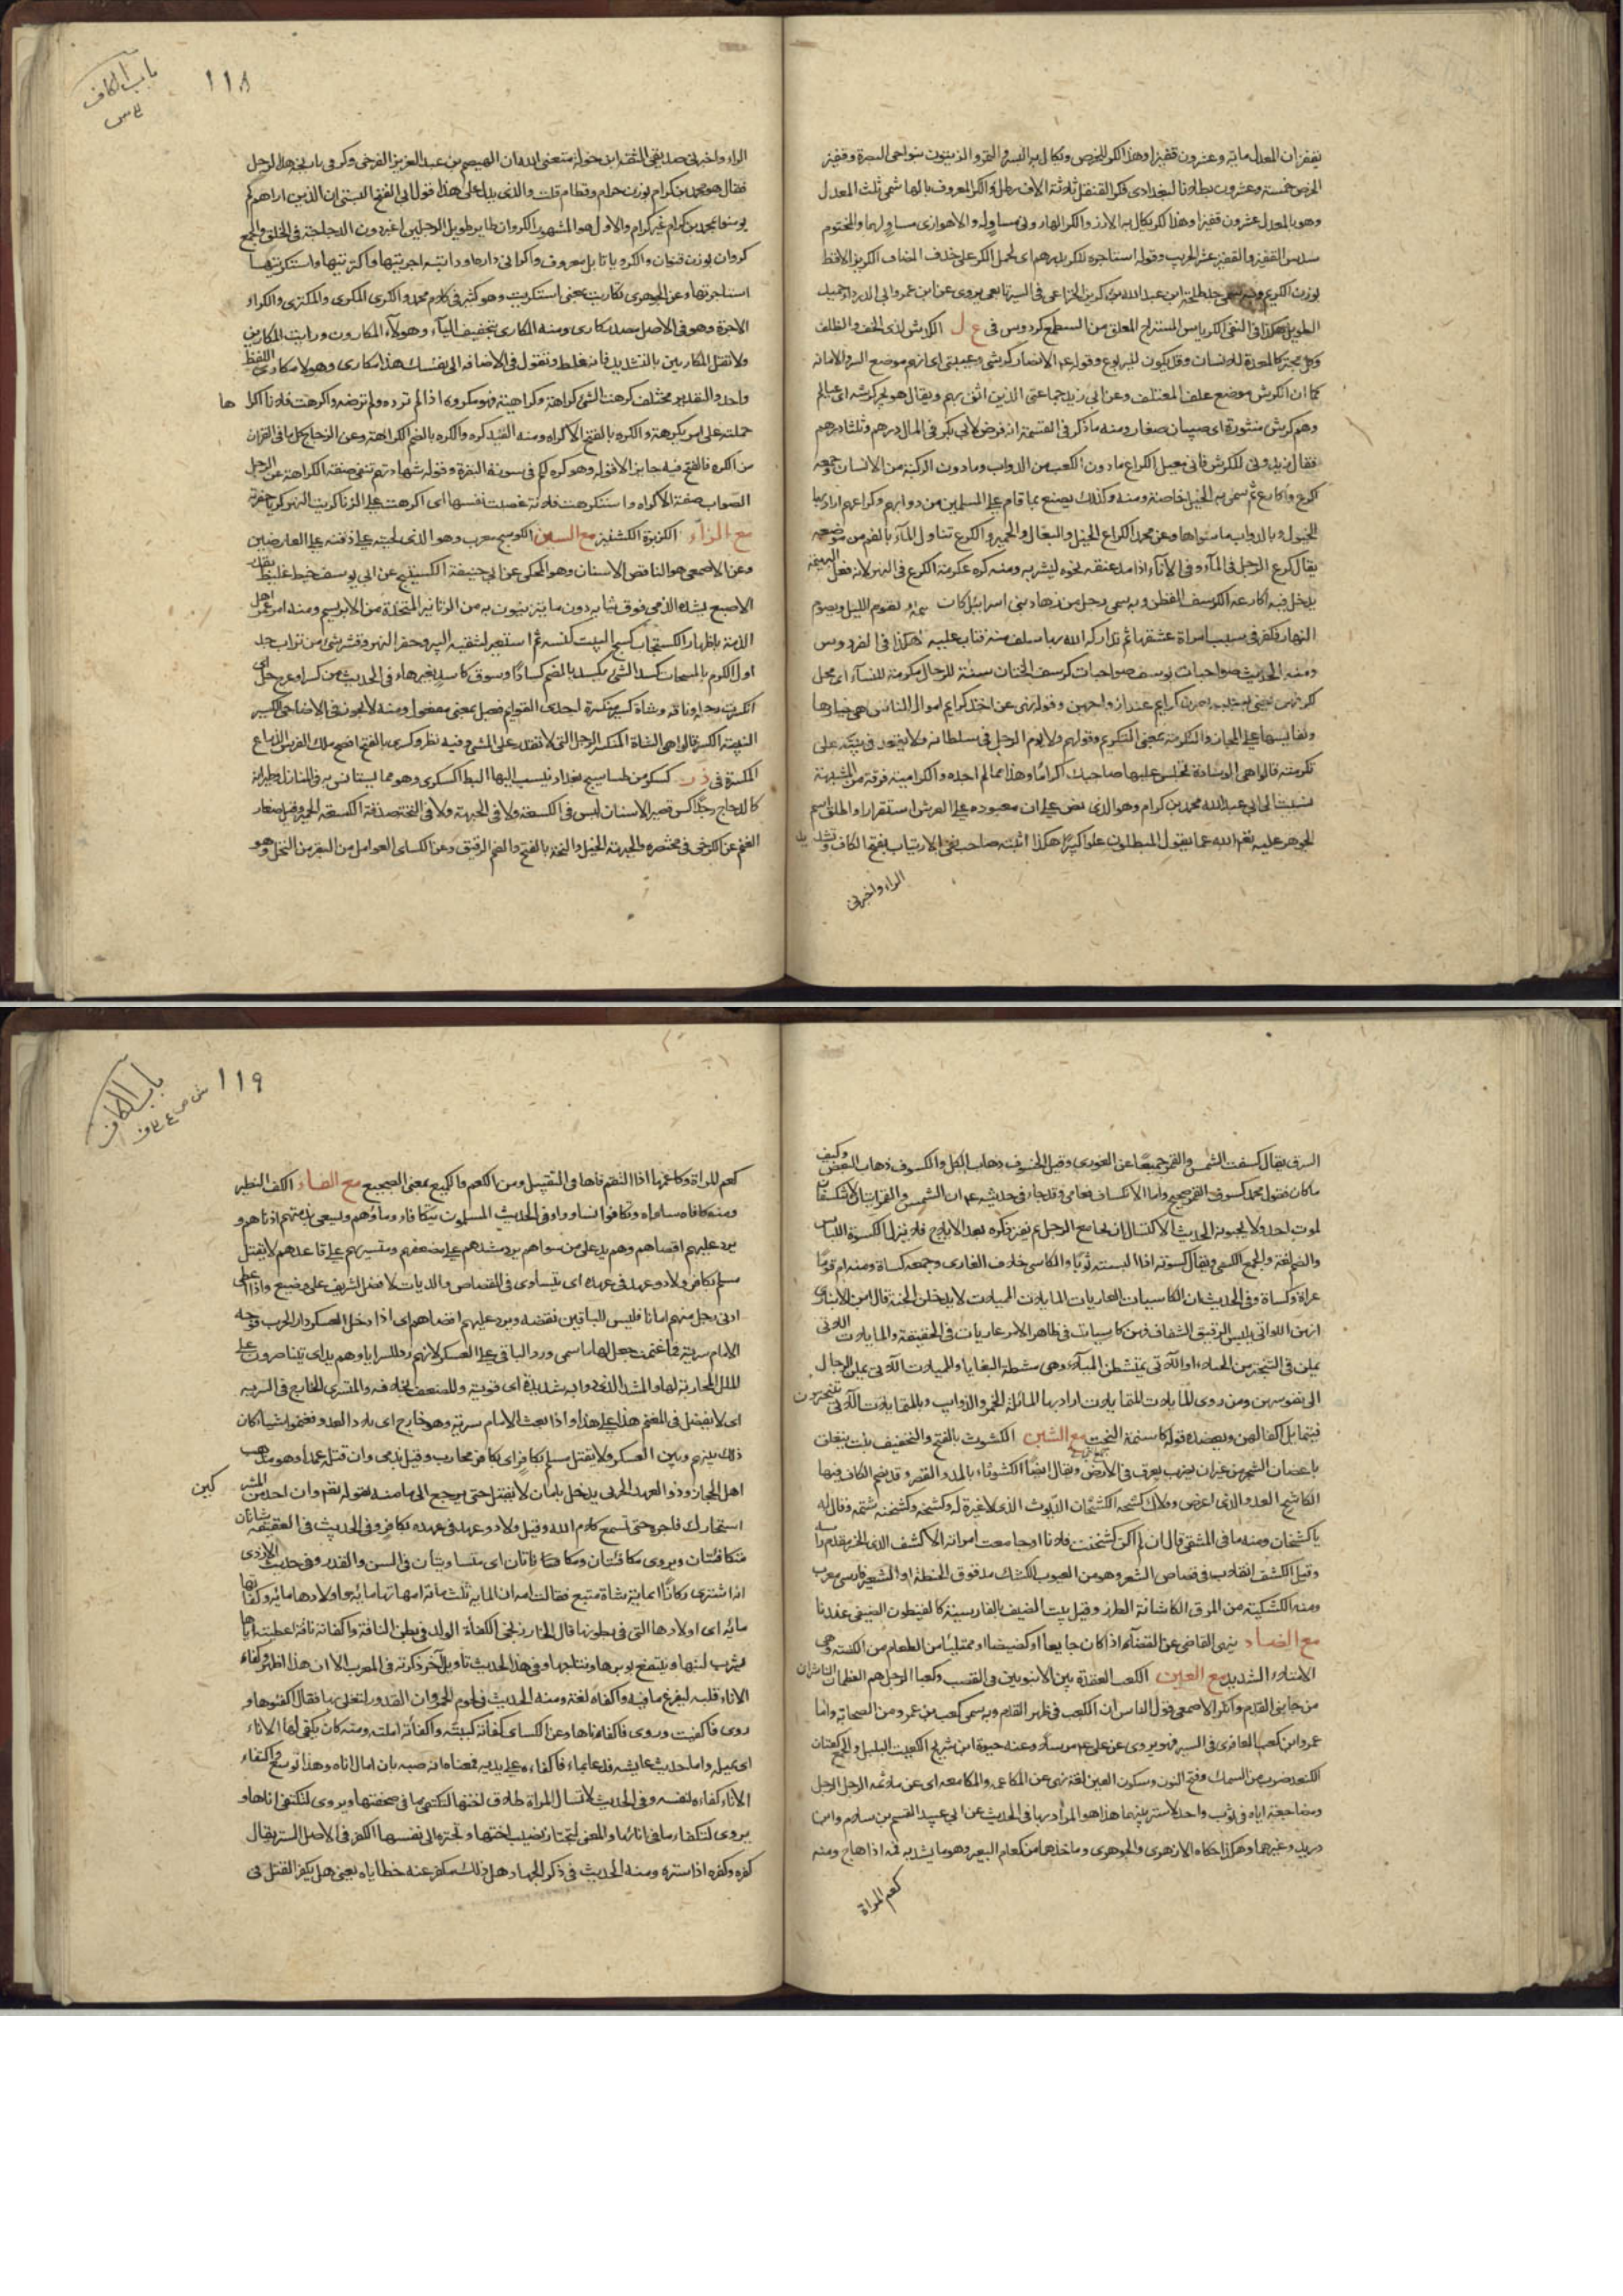 يقفزان المعدل مائة وعشرون قفيزا وهذا الكر للخرص ويكال به البسر والتمر والزيتون بنواحي البصرة وقفيز
الخرص خمسة وعشرون رطلا بالبغدادي فكر القنقل ثلاثة الاف رطل والكر المعروف بالهاشمي ثلث المعدل
وهو بالمعدل عشرون قفيزا وهذا الكر يكال به الارز والكر الهاروني مساو له والاهوازي مساو لهما والمختوم
سدس القفيز والقفيز عشر الجريب وقوله استاجره للكر بدرهم اى لحمل الكر على حذف المضاف الكريز الاقط
بوزن الكريم وبه سمى جد طلحة ابن عبد الله بن كريز الخزاعى فى السير تابعى يروى عن ابن عمر وابى الدرداء وحميد
الطويل هكذا فى النفى الكرياس المستراح المعلق من السطح كردوس فى ع ل الكرش لذى الخف والظلف
وكل مجتر كالمعدة للانسان وقد يكون لليربوع وقوله عم الانصار كرشى وعيبتى اى انهم موضع السر والامانة
كما ان الكرش موضع علف المعتلف وعن ابى زيد جماعتى الذين اثق بهم ويقال هو يجر كرشه اى عياله
وهم كرش منثورة اى صبيان صغار ومنه ما ذكر فى القسمة انه فرض لابى بكر فى المال درهم وثلثا درهم
فقال زيدونى للكرش فانى معيل الكراع ما دون الكعب من الدواب وما دون الركبة من الانسان وجمعه
اكرع واكارع ثم سمى به الخيل خاصة ومنه وكذلك يصنع بما قام على المسلمين من دوابهم وكراعهم اراد بها
الخيول وبالدواب ما سواها وعن محمد الكراع الخيل والبغال والحمير والكرع تناول الماء بالفم من موضعه
يقال كرع الرجل فى الماء وفى الاناء اذا مد عنقه نحوه ليشربه ومنه كره عكرمة الكرع فى النهر لانه فعل البهيمة
يدخل فيه اكارعه الكرسف القطن وبه سمى رجل من زهاد بنى اسرائيل كان يقوم الليل ويصوم
النهار فكفر فى سبب امراة عشقها ثم تداركه الله بما سلف منه فتاب عليه هكذا فى الفردوس
ومنه الحديث صواحبات يوسف صواحبات كرسف الختان سنة للرجال مكرمة للنساء اى محل
لكرمهن يعنى بسببه يصرن كرايم عند ازواجهن وقوله نهى عن اخذ كرايم اموال الناس هى خيارها
ونفايسها على المجاز والتكرمة بمعنى التكريم وقولهم ولا يؤم الرجل فى سلطانه ولا يقعد فى بيته على
تكرمته قالوا هى الوسادة تجلس عليها صاحبك اكراما وهذا مما لم اجده والكرامية فرقة من المشبهة
نسبت الى ابى عبد الله محمد بن كرام وهو الذى نص على ان معبوده على العرش استقرارا واطلق اسم
الجوهر عليه تعالى الله عما يقول المبطلون علوا كبيرا هكذا اثبته صاحب نفى الارتياب بفتح الكاف وتشديد
الراء واخبرنى
باب الكاف
س
١١٨
الراء واخبرنى صديقى الثقة ابن خواه متعنى الله ان الهيصم بن عبد العزيز الفرخى وكر فى تاريخه هذا الرجل
فقال هو محمد بن كرام بوزن حرام وقطام قلت والذى يدل على هذا قول ابى الفتح البستى ان الذين اراهم لم
يومنوا بمحمد بن كرام غير كرام والاول هو المشهور الكروان طاير طويل الرجلين اغبر دون الدجاجة فى الخلق والجمع
كروان بوزن قنوان والكرويا تابل معروف واكرانى داره او دابته اجرنيها واكتريتها واستكريتها
استاجرتها وعن الجوهرى تكاريت بمعنى استكريت وهو كثير فى كلام محمد والكرى المكرى والمكترى والكراء
الاجرة وهو فى الاصل مصدر كارى ومنه المكارى بتخفيف الياء وهولاء المكارون ورايت المكارين
ولا تقل المكاريين بالتشديد فانه غلط وتقول فى الاضافة الى نفسك هذا مكارى وهولا مكارى اللفظ
واحد والتقدير مختلف كرهت الشئ كراهة وكراهية فهو مكروه اذا لم ترده ولم ترضه واكرهت فلانا اكراها
حملته على امر يكرهه والكره بالفتح الاكراه ومنه القيد كره والكره بالضم الكراهة وعن الزجاج كل ما فى القران
من الكره فالفتح فيه جايز الا قوله وهو كره لكم فى سورة البقرة وقوله شهادتهم تنفى صفة الكراهة عن الرجل
الصواب صفة الاكراه واستكرهت فلانة غصبت نفسها اى اكرهت على الزنا كريت النهر كريا حفرته
مع الزاء الكزبرة الكشنيز مع السين الكوسج معرب وهو الذى لحيته على ذقنه على العارضين
وعن الاصمعى هو الناقص الاسنان وهو المحكى عن ابى حنيفة الكستيج عن ابى يوسف خيط غليظ بقدر
الاصبع يشده الذمى فوق ثيابه دون ما يتزينون به من الزنانير المتخذة من الابريسم ومنه امر عمر اهل
الذمة باظهار الكستيجات كسح البيت كنسه ثم استعير لتنقية البير وحفر النهر وقشر شئ من تراب جد
اول الكرم بالمسحات كسد الشئ يكسد بالضم كسادا وسوق كاسد بغير هاء فى الحديث من كسر او عرج حل اى
انكسرت رجله وناقة وشاة كسير منكسرة احدى القوايم فعيل بمعنى مفعول ومنه لا يجوز فى الاضاحى الكسير
البينة الكسر قالوا هى الشاة المنكسر الرجل التى لا تقدر على المشى وفيه نظر وكسرى بالفتح افصح ملك الفرس الذراع
المكسرة فى ذ ر كسكر من طساسيج بغداد ينسب اليها البط الكسكرى وهو مما يستانس به فى المنازل وطيرانه
كالدجاج رجل اكس قصير الاسنان ليس فى الكسعة ولا فى الجبهة ولا فى النخة صدقة الكسعة الحمير وقيل صغار
الغنم عن الكرخى فى مختصره والجبهة الخيل والنخة بالفتح والضم الرقيق وعن الكساى العوامل من البقر من النخ وهو
السوق يقال كسفت الشمس والقمر جميعا عن الغورى وقيل الخسوف ذهاب الكل والكسوف ذهاب البعض وكيف
ما كان فقول محمد كسوف القمر صحيح واما الانكساف فعامى وقد جاء فى حديثه عم ان الشمس والقمر ايتان لا تنكسفان
لموت احد ولا لحيوته الحديث الاكسال ان يجامع الرجل ثم يفتر ذكره بعد الايلاج فلا ينزل الكسوة اللباس
والضم لغة والجمع الكسى ويقال كسوته اذا البسته ثوبا والكاسى خلاف العارى وجمعه كساة ومنه ام قوما
عراة وكساة وفى الحديث ان الكاسيات العاريات المايلات المميلات لا يدخلن الجنة قال ابن الانبارى
انهن اللواتى يلبسن الرقيق الشفاف فهن كاسيات فى ظاهر الامر عاريات فى الحقيقة والمايلات اللاتى
يملن فى التبختر من الحيلاء او اللاتى يمتشطن الميلاء وهى مشطة البغايا والمميلات اللاتى يملن الرجال
الى نفوسهن ومن روى المايلات المتمايلات اراد بها المائلة الخمر والذوايب وبالمتمايلات اللاتى يتبخترن
فيتمايل اكفالهن ويعضده قوله كاسنمة البخت مع الشين الكشوث بالفتح والتخفيف نبت يتعلق
باغصان الشجر من غير ان يضرب بعرق فى الارض ويقال ايضا الكشوثاء بالمد والقصر وقد يضم الكاف فيهما
الكاشح العدو الذى اعرض وولاك كشحه الكشخان الديوث الذى لا غيرة له وكشخه وكشخنه شتمه وقال له
يا كشخان ومنه ما فى المنتقى قال ان لم اكن كشخنت فلانا او جامعت امراته الاكشف الذى انحسر مقدم راسه
وقيل الكشف انقلاب فى قصاص الشعر وهو من العيوب الكشك مدقوق الحنطة او الشعير فارسى معرب
ومنه الكشكية من المرق الكاشانة الطرز وقيل بيت المضيف بالفارسية كالقيطون الصيفى عندنا
مع الضاد ينهى القاضى عن القضاء اذا كان جايعا او كضيضا او ممتليا من الطعام من الكظة وهى
الامتلاء الشديد مع العين الكعب العقدة بين الانبوبين فى القصب وكعبا الرجل هم العظمان الناشزان
من جانبى القدم وانكر الاصمعى قول الناس ان الكعب فى ظهر القدم وبه سمى كعب بن عمرو من الصحابة واما
عمرو ابن كعب المعافرى فى السير فهو يروى عن على عم مرسلا وعنه حيوة ابن شريح الكعيت البلبل والجمع كعتان
الكنعد ضرب من السمك وفتح النون وسكون العين لغة نهى عن المكاعمة والمكامعة اى عن ملاثمة الرجل الرجل
ومضاجعته اياه فى ثوب واحد لا ستر بينهما هذا هو المراد بها فى الحديث عن ابى عبيد القسم بن سلام وابن
دريد وغيرهما وهكذا حكاه الازهرى والجوهرى وماخذهما من كعام البعير وهو ما يشد به فمه اذا هاج ومنه
كعم المراة
باب الكاف
ش ض ع ف
١١٩
كعم المراة وكاعمها اذا التقم فاها فى التقبيل ومن الكمع والكميع بمعنى الضجيع مع الفاء الكفؤ النظير
ومنه كافاه ساواه وتكافوا تساووا وفى الحديث المسلمون تتكافاء دماؤهم ويسعى بذمتهم ادناهم و
يرد عليهم اقصاهم وهم يد على من سواهم يرد مشدهم على مضعفهم ومتسريهم على قاعدهم لا يقتل
مسلم بكافر ولا ذو عهد فى عهده اى يتساوى فى القصاص والديات لا فضل لشريف على وضيع واذا اعطى
ادنى رجل منهم امانا فليس للباقين نقضه ويرد عليهم اقصاهم اى اذا دخل العسكر دار الحرب فوجه
الامام سرية فما غنمت جعل لها ما سمى ورد الباقى على العسكر لانهم ردء للسرايا وهم يد اى يتناصرون على
الملل المحاربة لها والمشد الذى دوابه شديدة اى قوية والمضعف بخلافه والمتسرى الخارج فى السرية
اى لا يفضل فى المغنم هذا على هذا واذا بعث الامام سرية وهو خارج الى بلاد العدو فغنموا شيئا كان
ذلك بينهم وبين العسكر ولا يقتل مسلم بكافر اى بكافر محارب وقيل بذمى وان قتله عمدا وهو مذهب
اهل الحجاز وذو العهد الحربى يدخل بامان لا يقتل حتى يرجع الى مامنه لقوله تعالى وان احد من المشركين
استجارك فاجره حتى يسمع كلام الله وقيل ولا ذو عهد فى عهده بكافر وفى الحديث فى العقيقة شاتان
متكافئتان ويروى مكافئتان ومكافاتان اى متساويتان فى السن والقدر وفى حديث الازدى
انه اشترى ركازا بماية شاة متبع فقالت امه ان الماية ثلث ماية امهاتها مائة واولادها مائة وكفاتها
مائة اى اولادها التى فى بطونها قال الخارزنجى الكفاة الولد فى بطن الناقة واكفاته ناقة اعطيته اياها
ليشرب لبنها وينتفع بوبرها ونتاجها وفى هذا الحديث تاويل آخر ذكرته فى المعرب الا ان هذا اظهر وكفاء
الاناء قلبه ليفرغ ما فيه واكفاه لغة ومنه الحديث فى لحوم الحمر وان القدور لتغلى بها فقال اكفئوها و
روى فاكفيت وروى فاكفاناها وعن الكساى كفاته كببته واكفاته املته ومنه كان يكفى لها الاناء
اى يميله واما حديث عايشه فدعا بماء فاكفاه على يديه فمعناه انه صبه بان امال اناه وهذا توسع واكتفاء
الاناء كفاه لنفسه وفى الحديث لا تسال المراة طلاق اختها لتكتفى ما فى صحفتها ويروى لتكتفى اناها و
يروى لتكفاء ما فى انائها والمعنى لتختار نصيب اختها وتجتره الى نفسها الكفر فى الاصل الستر يقال
كفره وكفره اذا ستره ومنه الحديث فى ذكر الجهاد هل ذلك مكفر عنه خطاياه يعنى هل يكفر القتل فى